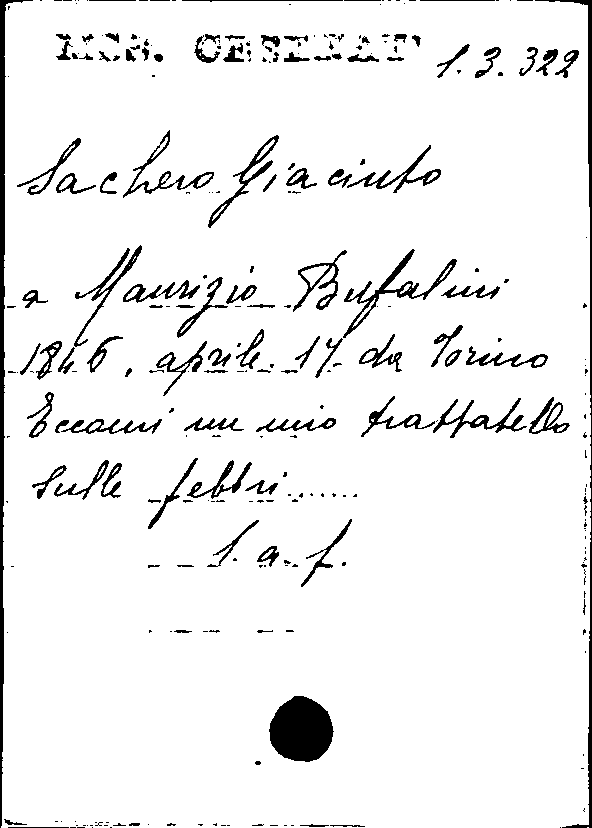 MSS. CESENAT 1.3.322
Sachero Giacinto
a Maurizio Bufalini
1846, aprile 17 da Torino
Eccomi un mio trattatello
sulle febbri......
l. a. f.